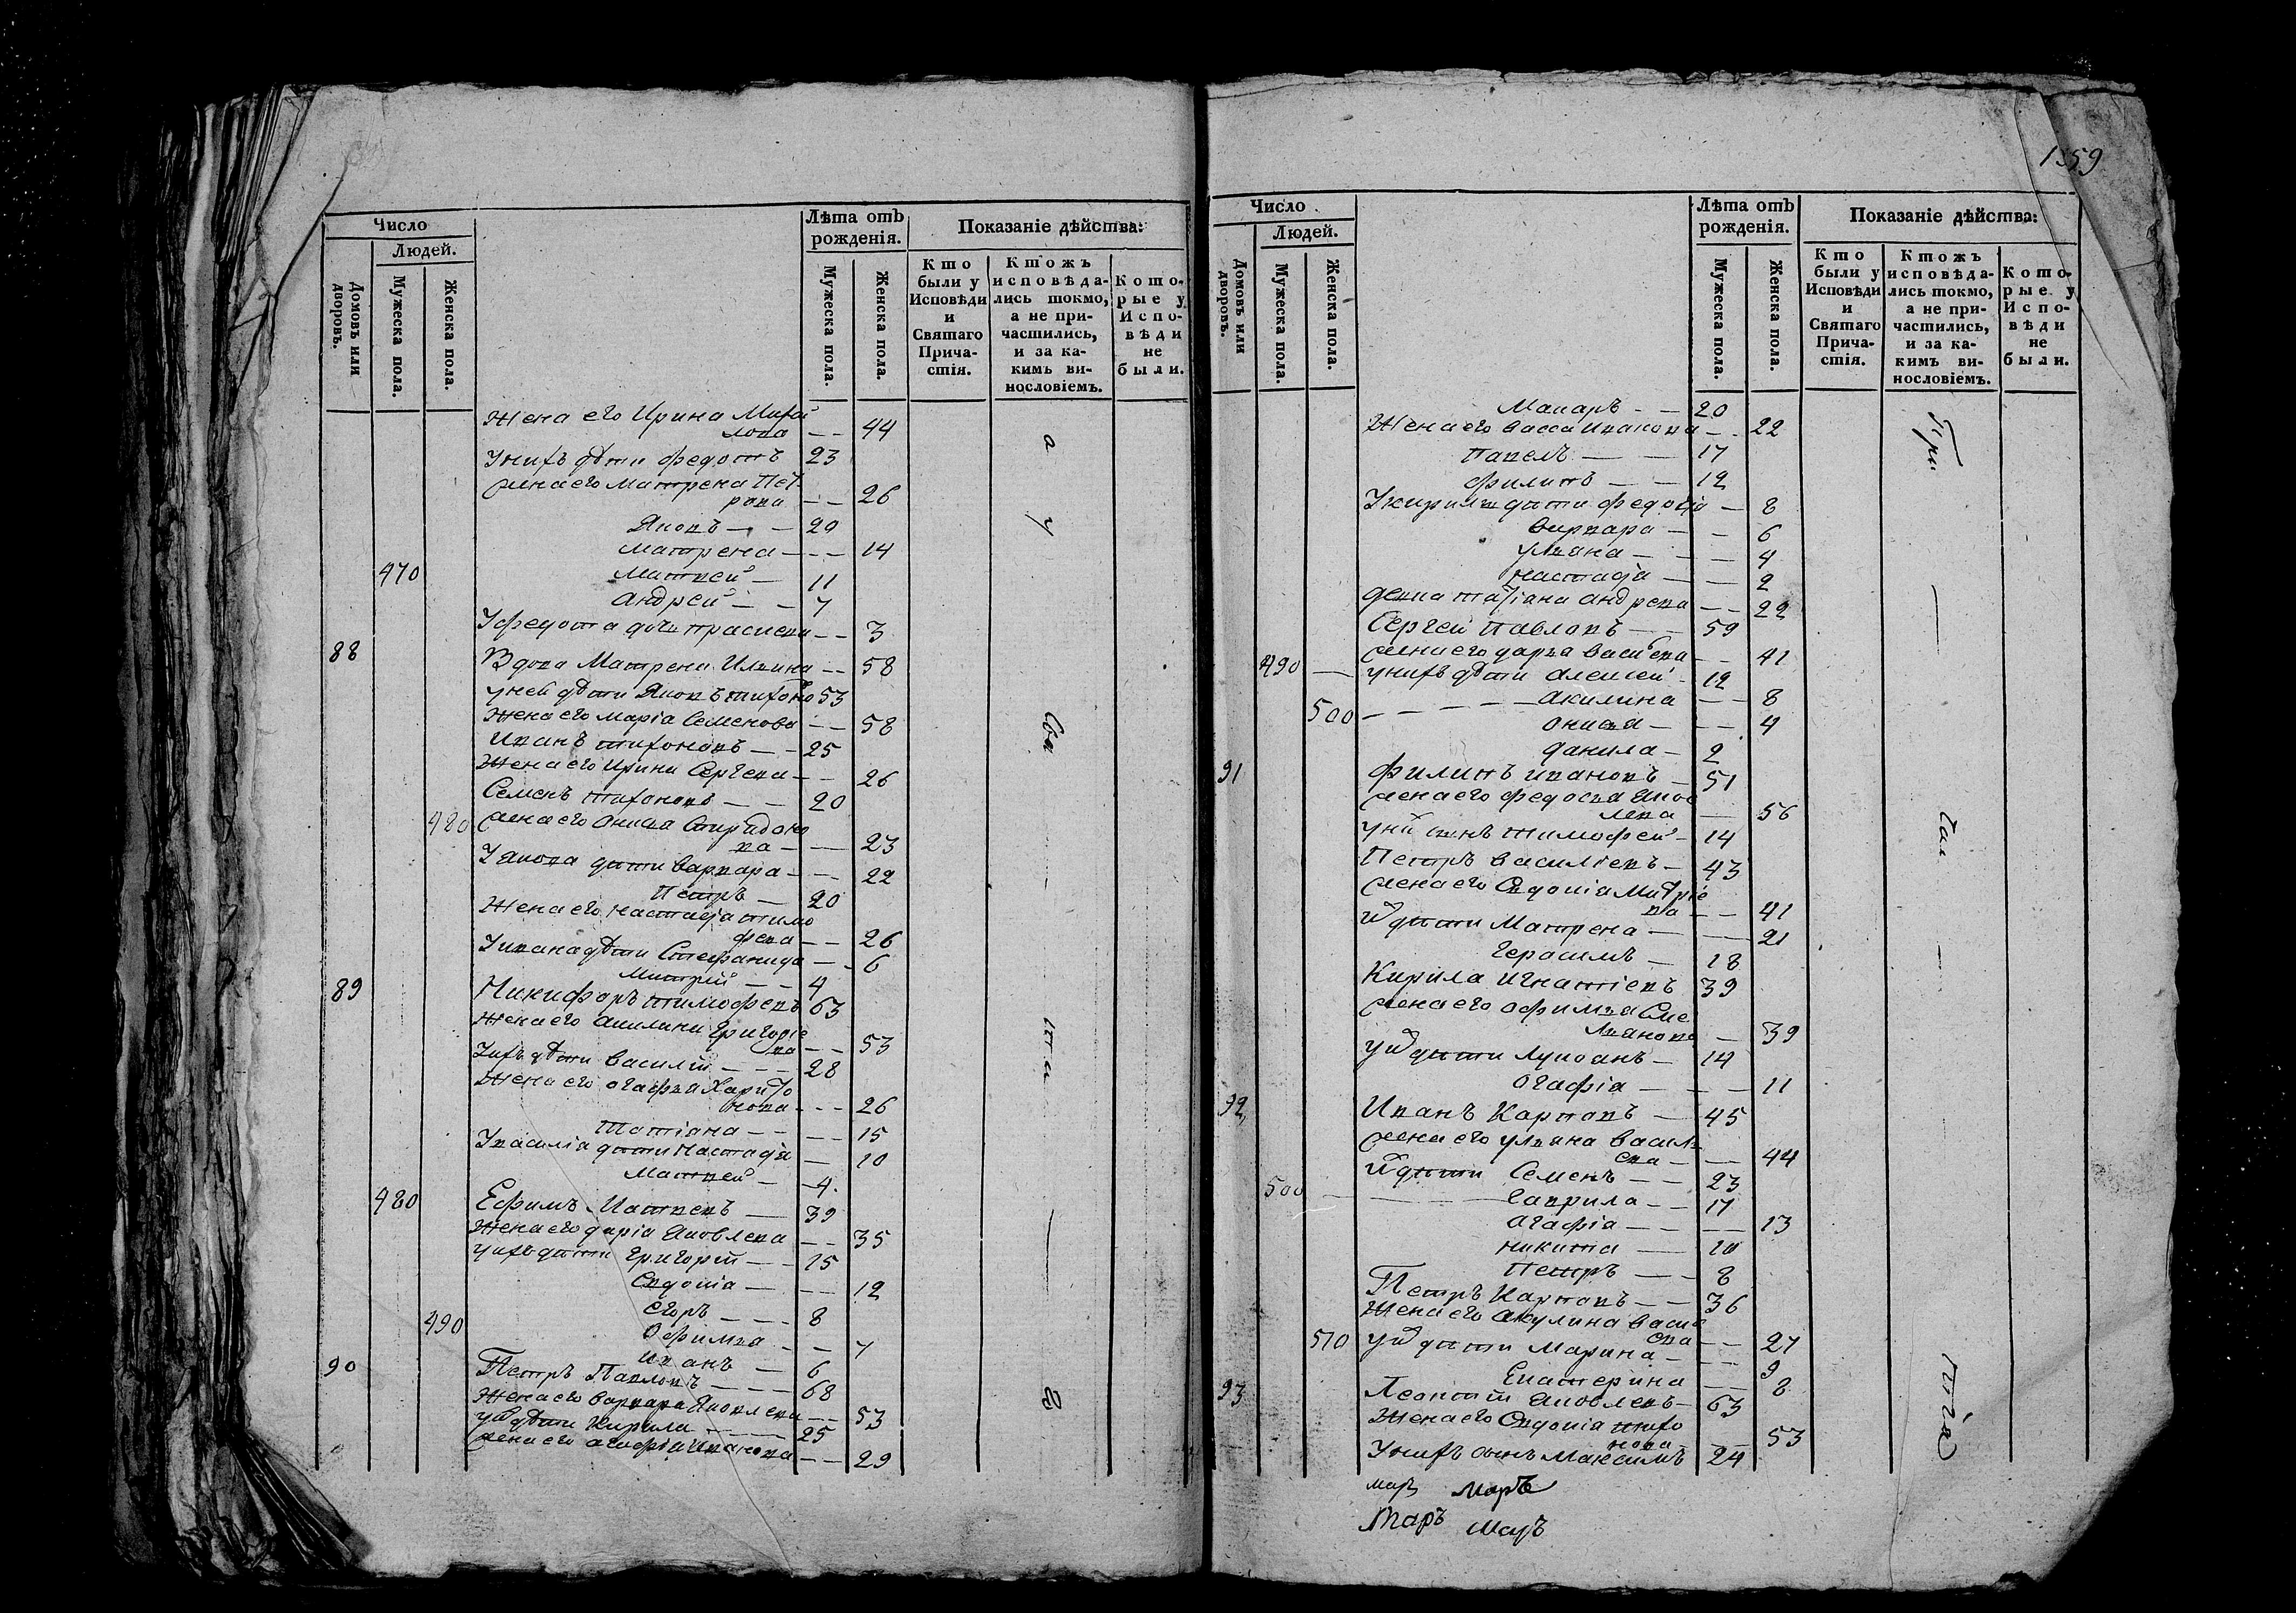 Число
Людей.
Домовъ или дворовъ.
Мужеска пола.
Женска пола.
Лѣта отъ рожденія.
Мужеска пола.
Женска пола.
Показаніе дѣйства:
Кто были у Исповѣди и Святаго Прича-стія.
Ктожъ исповѣда-лись токмо, а не при-частились, и за ка-кимъ ви-нословіемъ.
Кото-рые у Испо-вѣди не были.
Жена его Ирина Михай
лова — — 44
У нихъ дѣти Федотъ 23
жена его Матрена Пет
рова — — 26
Яковъ — — 20
Матрена — — 14
470 Матвей — 11
Андрей — — 7
У Федота дочь Праскева — — 3
88 Вдова Матрена Ильина — — 58
у ней дѣти Яковъ Тихоно 53
Жена его Маріа Семенова — — 58
Иванъ Тихоновъ — — 25
Жена его Ирина Сергева — — 26
Семенъ Тихоновъ — — 20
480 жена его Анисья Спиридоно
ва — — 23
У Якова дѣти Варвара — — 22
Петръ — 20
Жена его Настасја Тимо
феева — — 26
У Ивана дѣти Стефанида — — 6
Митрій — — 4
89 Никифоръ Тимофеевъ 63
Жена его Акилина Григоріе
ва — — 53
У нихъ дѣти Василій — — 28
Жена его Огафья Харито
нова — — 26
Татіана — — 15
У Василіа дѣти Настасја — 10
Матвей — 4
480 Ефимъ Матвевъ — 39
Жена его Даріа Яковлева — — 35
у нихъ дѣти Григорій — — 15
Евдокіа — — 12
Егоръ — — 8
490 Офимьа — — 7
Иванъ — 6
90 Петръ Павловъ — — 68
Жена его Варвара Яковлева — — 53
у них дѣти Кирила — — 25
жена его Агафіа Иванова — — 29
а
у
Свя
та
г
1559
Число
Людей.
Домовъ или дворовъ.
Мужеска пола.
Женска пола.
Лѣта отъ рожденія.
Мужеска пола.
Женска пола.
Показаніе дѣйства:
Кто были у Исповѣди и Святаго Прича-стія.
Ктожъ исповѣда-лись токмо, а не при-частились, и за ка-кимъ ви-нословіемъ.
Кото-рые у Испо-вѣди не были.
Макаръ — — 20
Жена его Васса Иванова — — 22
Павелъ — — 17
Филипъ — — 12
У Кирила дѣти Федосја — 8
Варвара — — 6
Ульана — — 4
Настасја — — 2
девка Татіана Андрева — — 22
Сергей Павловъ — — 59
490 жена его Дарьа Василева — — 41
у нихъ дѣти Алексей — 12
500 Акилина — — 8
Анисьа — — 4
Данила — 2
91 Филипъ Ивановъ — 51
жена его Федосьа Яков
лева — 56
у них сынъ Тимофей — 14
Петръ Василіевъ — 43
жена его Евдокіа Митріе
ва — — 41
у них дѣти Матрена — — 21
Герасимъ — 18
Кирила Игнатіевъ 39
жена его Офимьа Еме
льанова — 39
у них дѣти Лукіанъ — 14
Огафіа — — 11
92 Иванъ Карповъ — 45
жена его Ульана Василь
ева — — 44
у них дѣти Семенъ — — 23
500 Гаврила — — 17
Агафіа — — 13
Никита — 10
Петръ — — 8
Петръ Карповъ — — 36
Жена его Акулина Васил
ева — — 27
510 у них дѣти Марина — — 9
Екатерина — — 8
93 Леонтій Яковлевъ — 63
Жена его Евдокіа Тихо
нова — — 53
У нихъ сынъ Максимъ — 24
При
час
тіа
Маръ